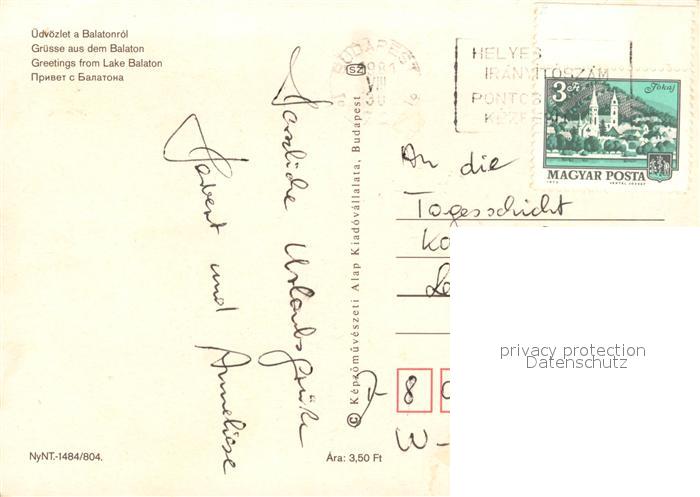 Üdvözlet a Balatonról
Grüsse aus dem Balaton
Greetings from Lake Balaton
Привет с Балатона
Herzliche Urlaubsgrüße
und Anneliese
NyNT.-1484/804.
Ára: 3,50 Ft
© Képzőművészeti Alap Kiadóvállalata, Budapest
SZ
BUDAPEST
1981
VIII
HELYES
IRÁNYÍTÓSZÁM
PONTOS
KÉZB
3 Ft
Tokaj
MAGYAR POSTA
An die
Tagesschicht
8
W-
privacy protection
Datenschutz